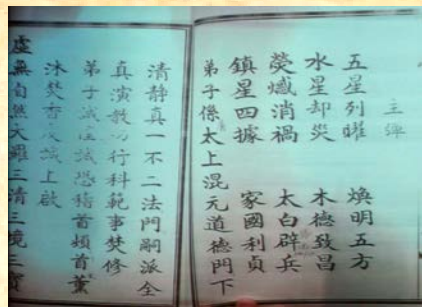 主澤
五星列曜　煥明五方
水星却災　木德致昌
熒惑消禍　太白辟兵
鎮星四據　家國利貞
弟子係太上混元道德門下
清靜真一不二法門嗣派全
真演教奉行科範事焚修
弟子誠惶誠恐稽首頓首薰
沐焚香虔誠上啟
虛無自然大羅三清三境三寶